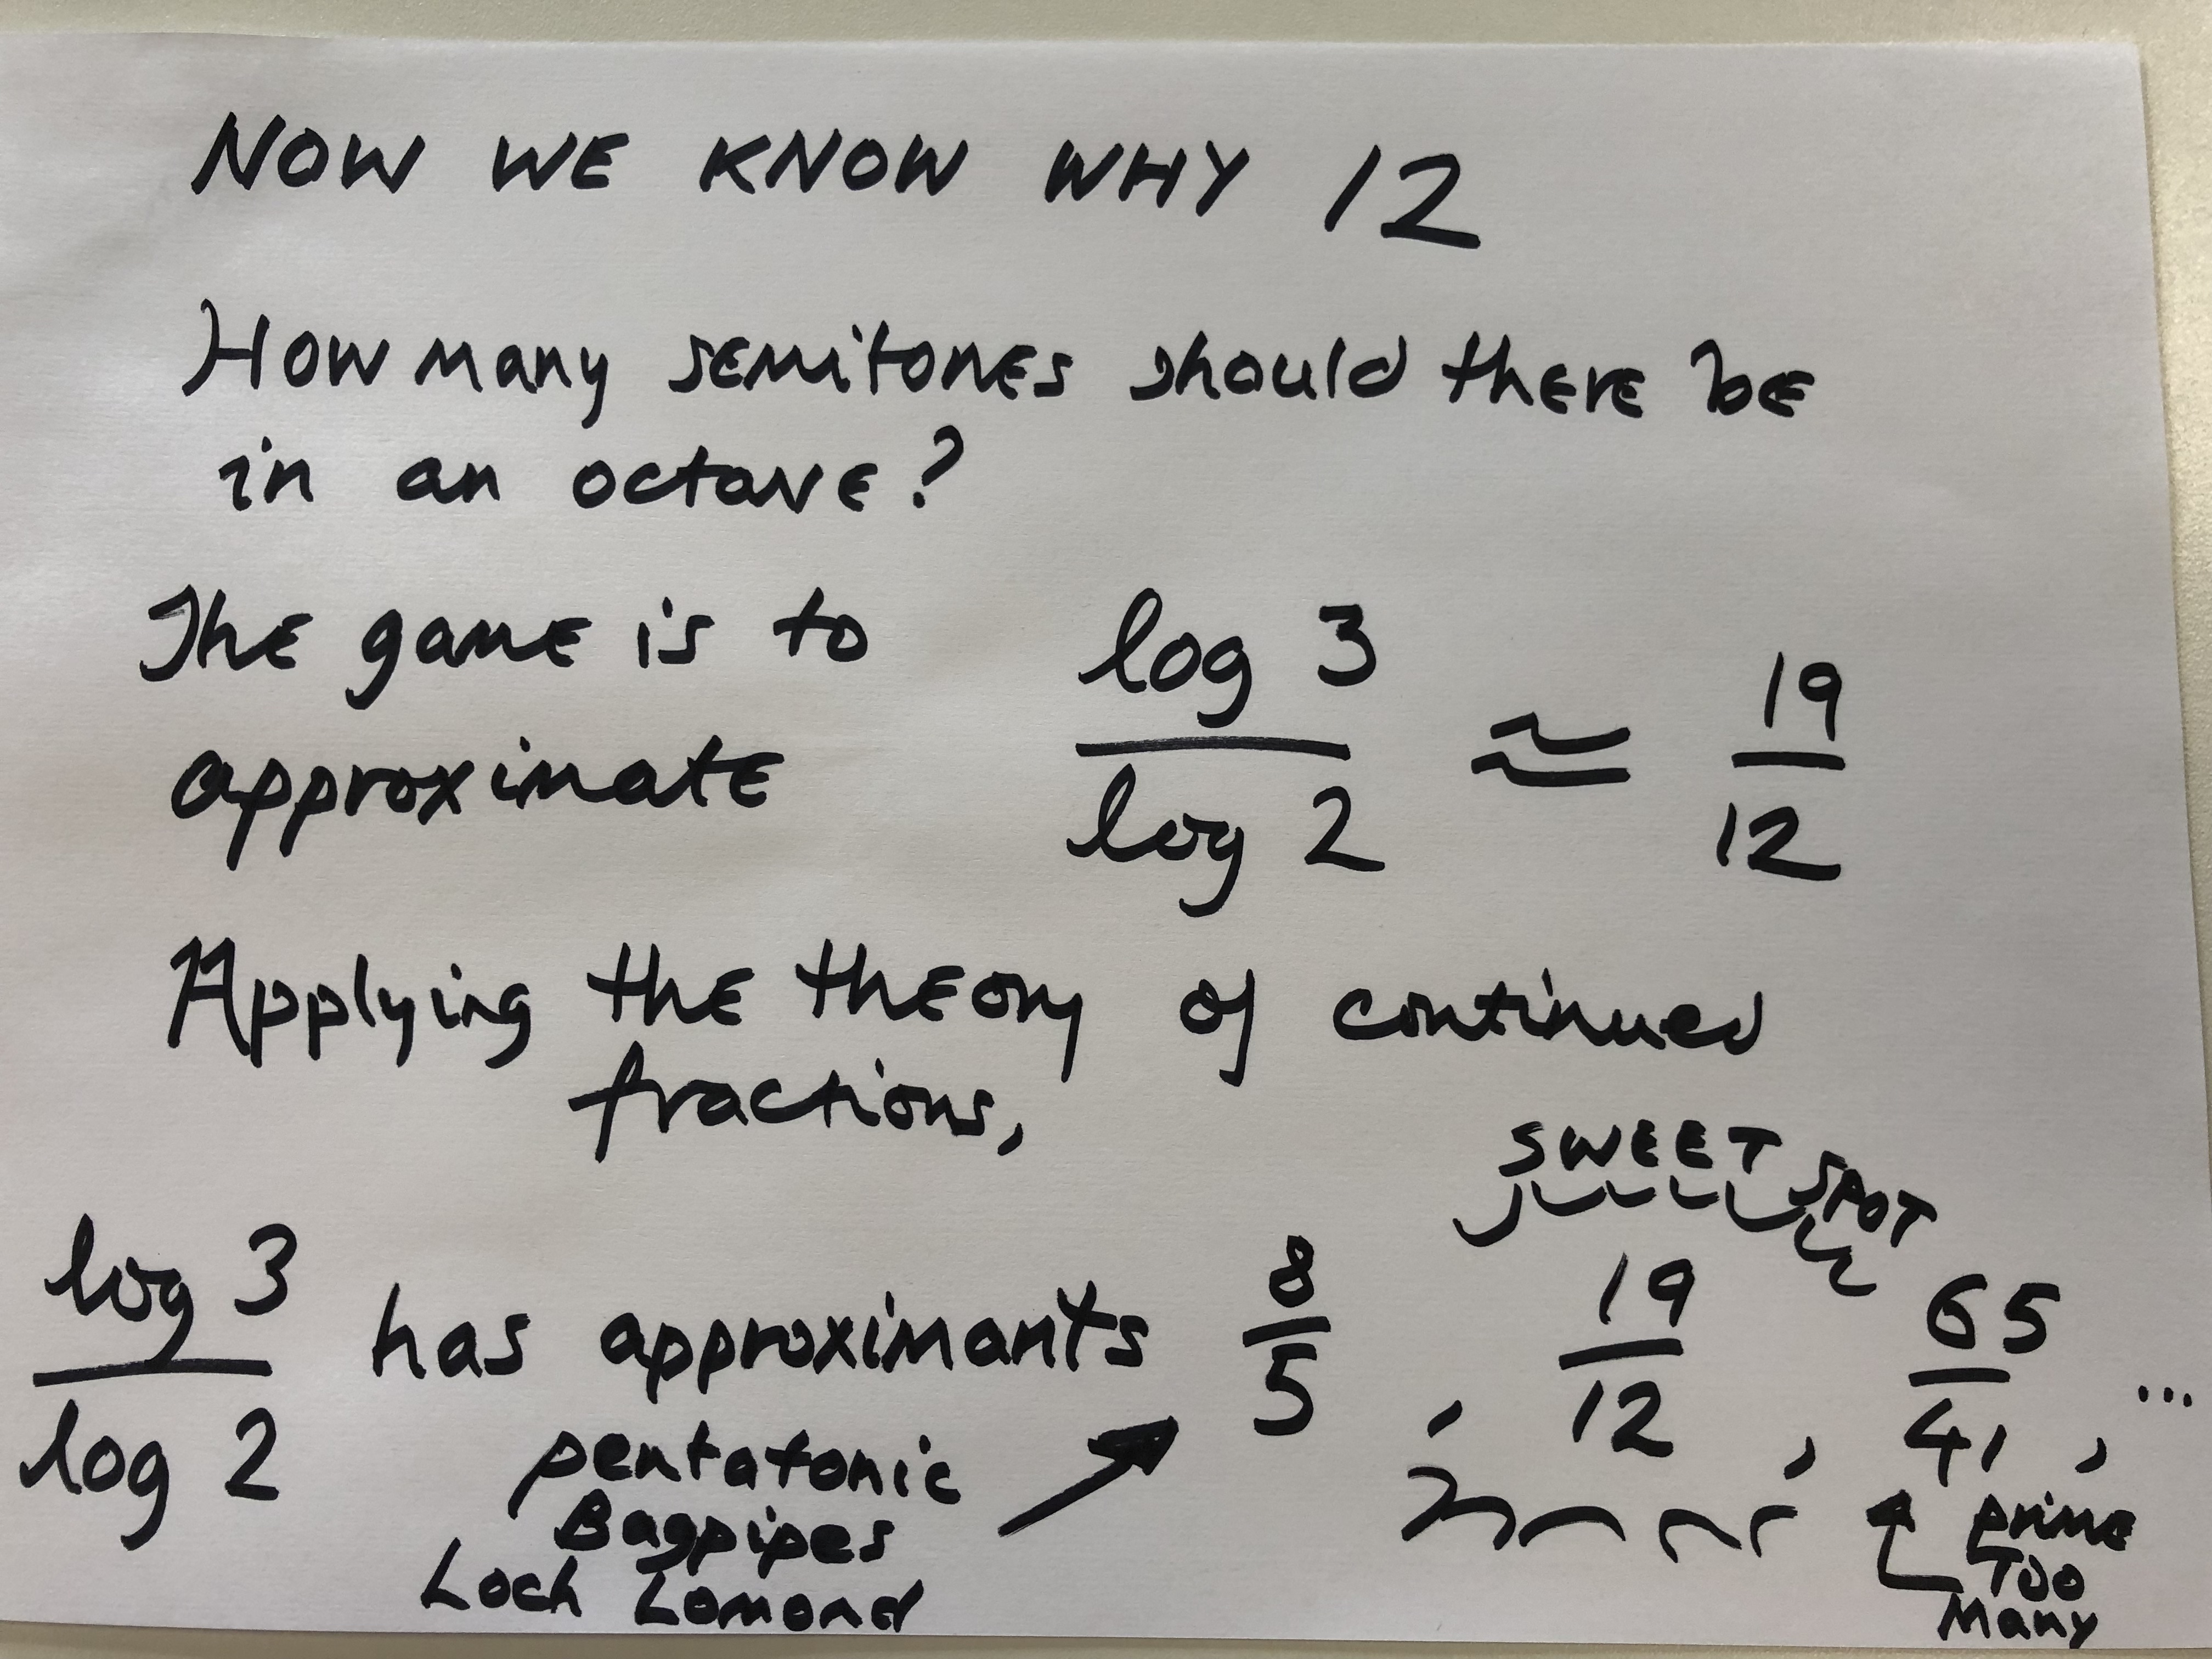 NOW WE KNOW WHY 12
How many semitones should there be
in an octave?
The game is to
approximate
log 3 / log 2 ≈ 19 / 12
Applying the theory of continued
fractions,
SWEET SPOT
log 3 / log 2 has approximants 8/5 , 19/12 , 65/41 , ...
pentatonic
Bagpipes
Loch Lomond
prime
Too
Many